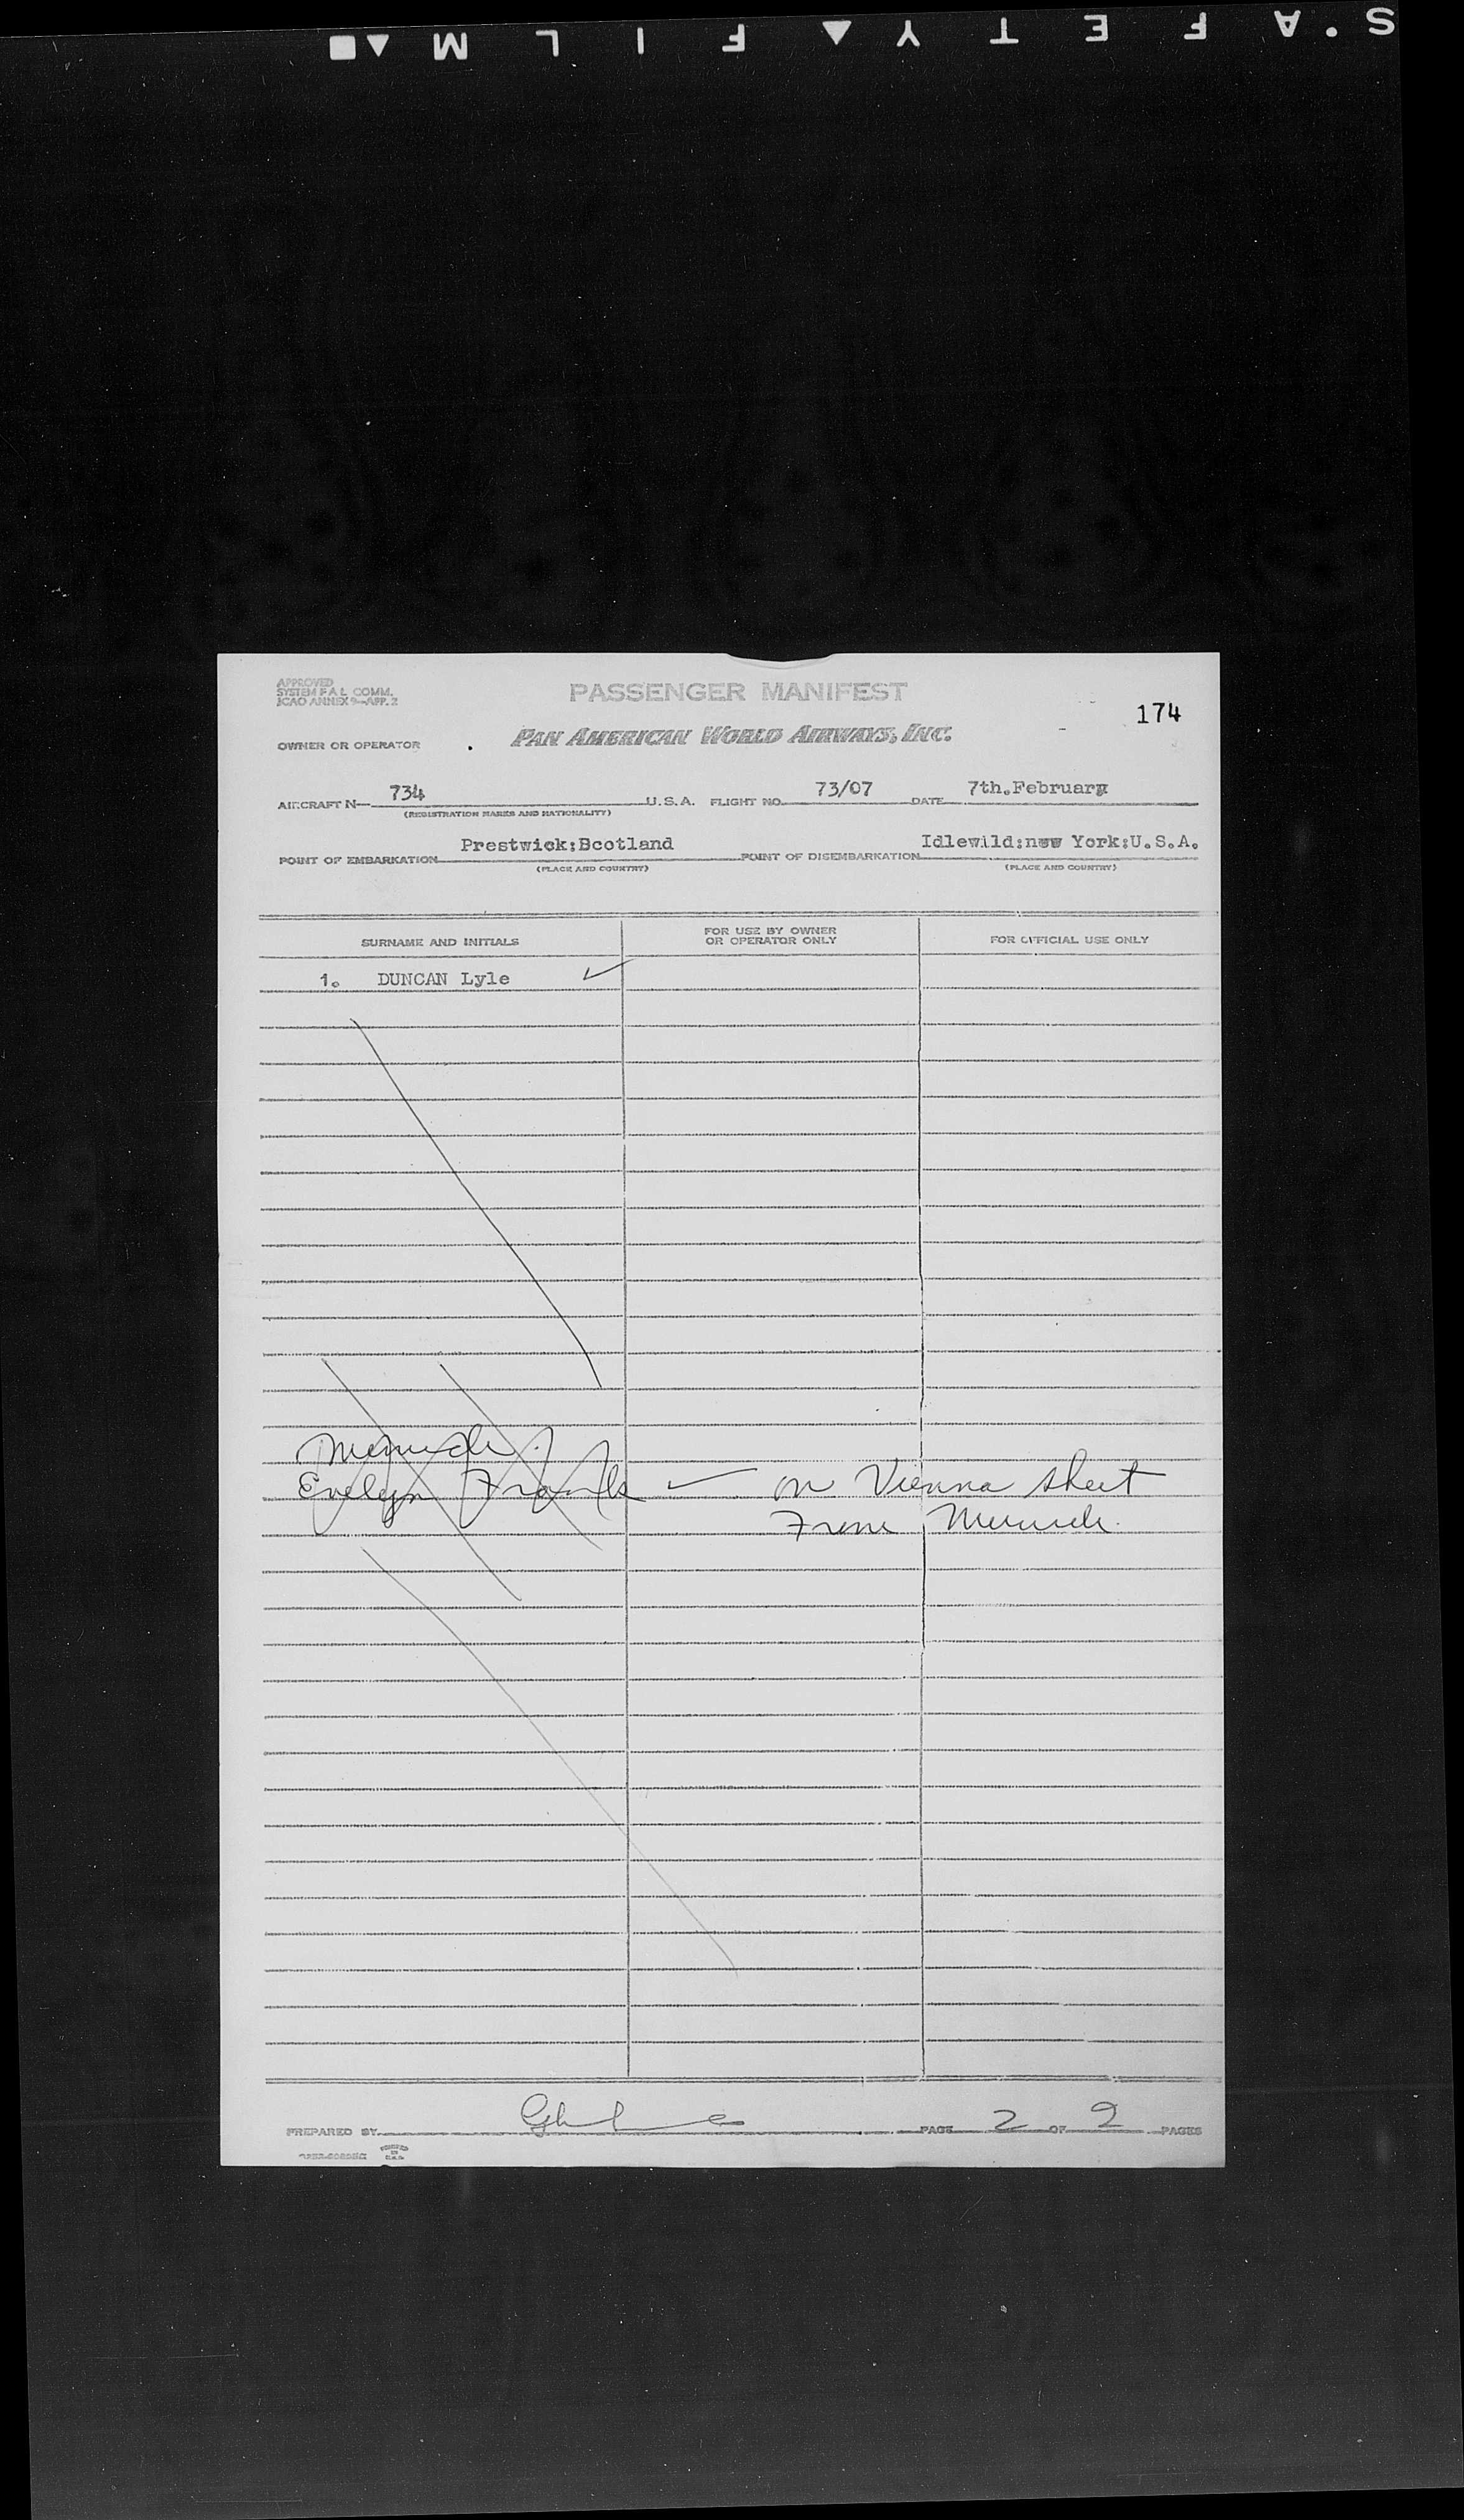 S.AFETY▲FILM▲■
APPROVED
SYSTEM F A L COMM.
ICAO ANNEX 9—APP. 2
PASSENGER MANIFEST
174
OWNER OR OPERATOR
PAN AMERICAN WORLD AIRWAYS, INC.
AIRCRAFT N— 734 U.S.A. FLIGHT NO. 73/07 DATE 7th.February
(REGISTRATION MARKS AND NATIONALITY)
POINT OF EMBARKATION Prestwick:Bcotland POINT OF DISEMBARKATION Idlewild:new York:U.S.A.
(PLACE AND COUNTRY) (PLACE AND COUNTRY)
SURNAME AND INITIALS FOR USE BY OWNER OR OPERATOR ONLY FOR OFFICIAL USE ONLY
1. DUNCAN Lyle ✓
Munich.
Evelyn Frank ✓ on Vienna sheet
From Munich.
PREPARED BY PAGE 2 OF 2 PAGES
PRINTED
IN
U.S.A.